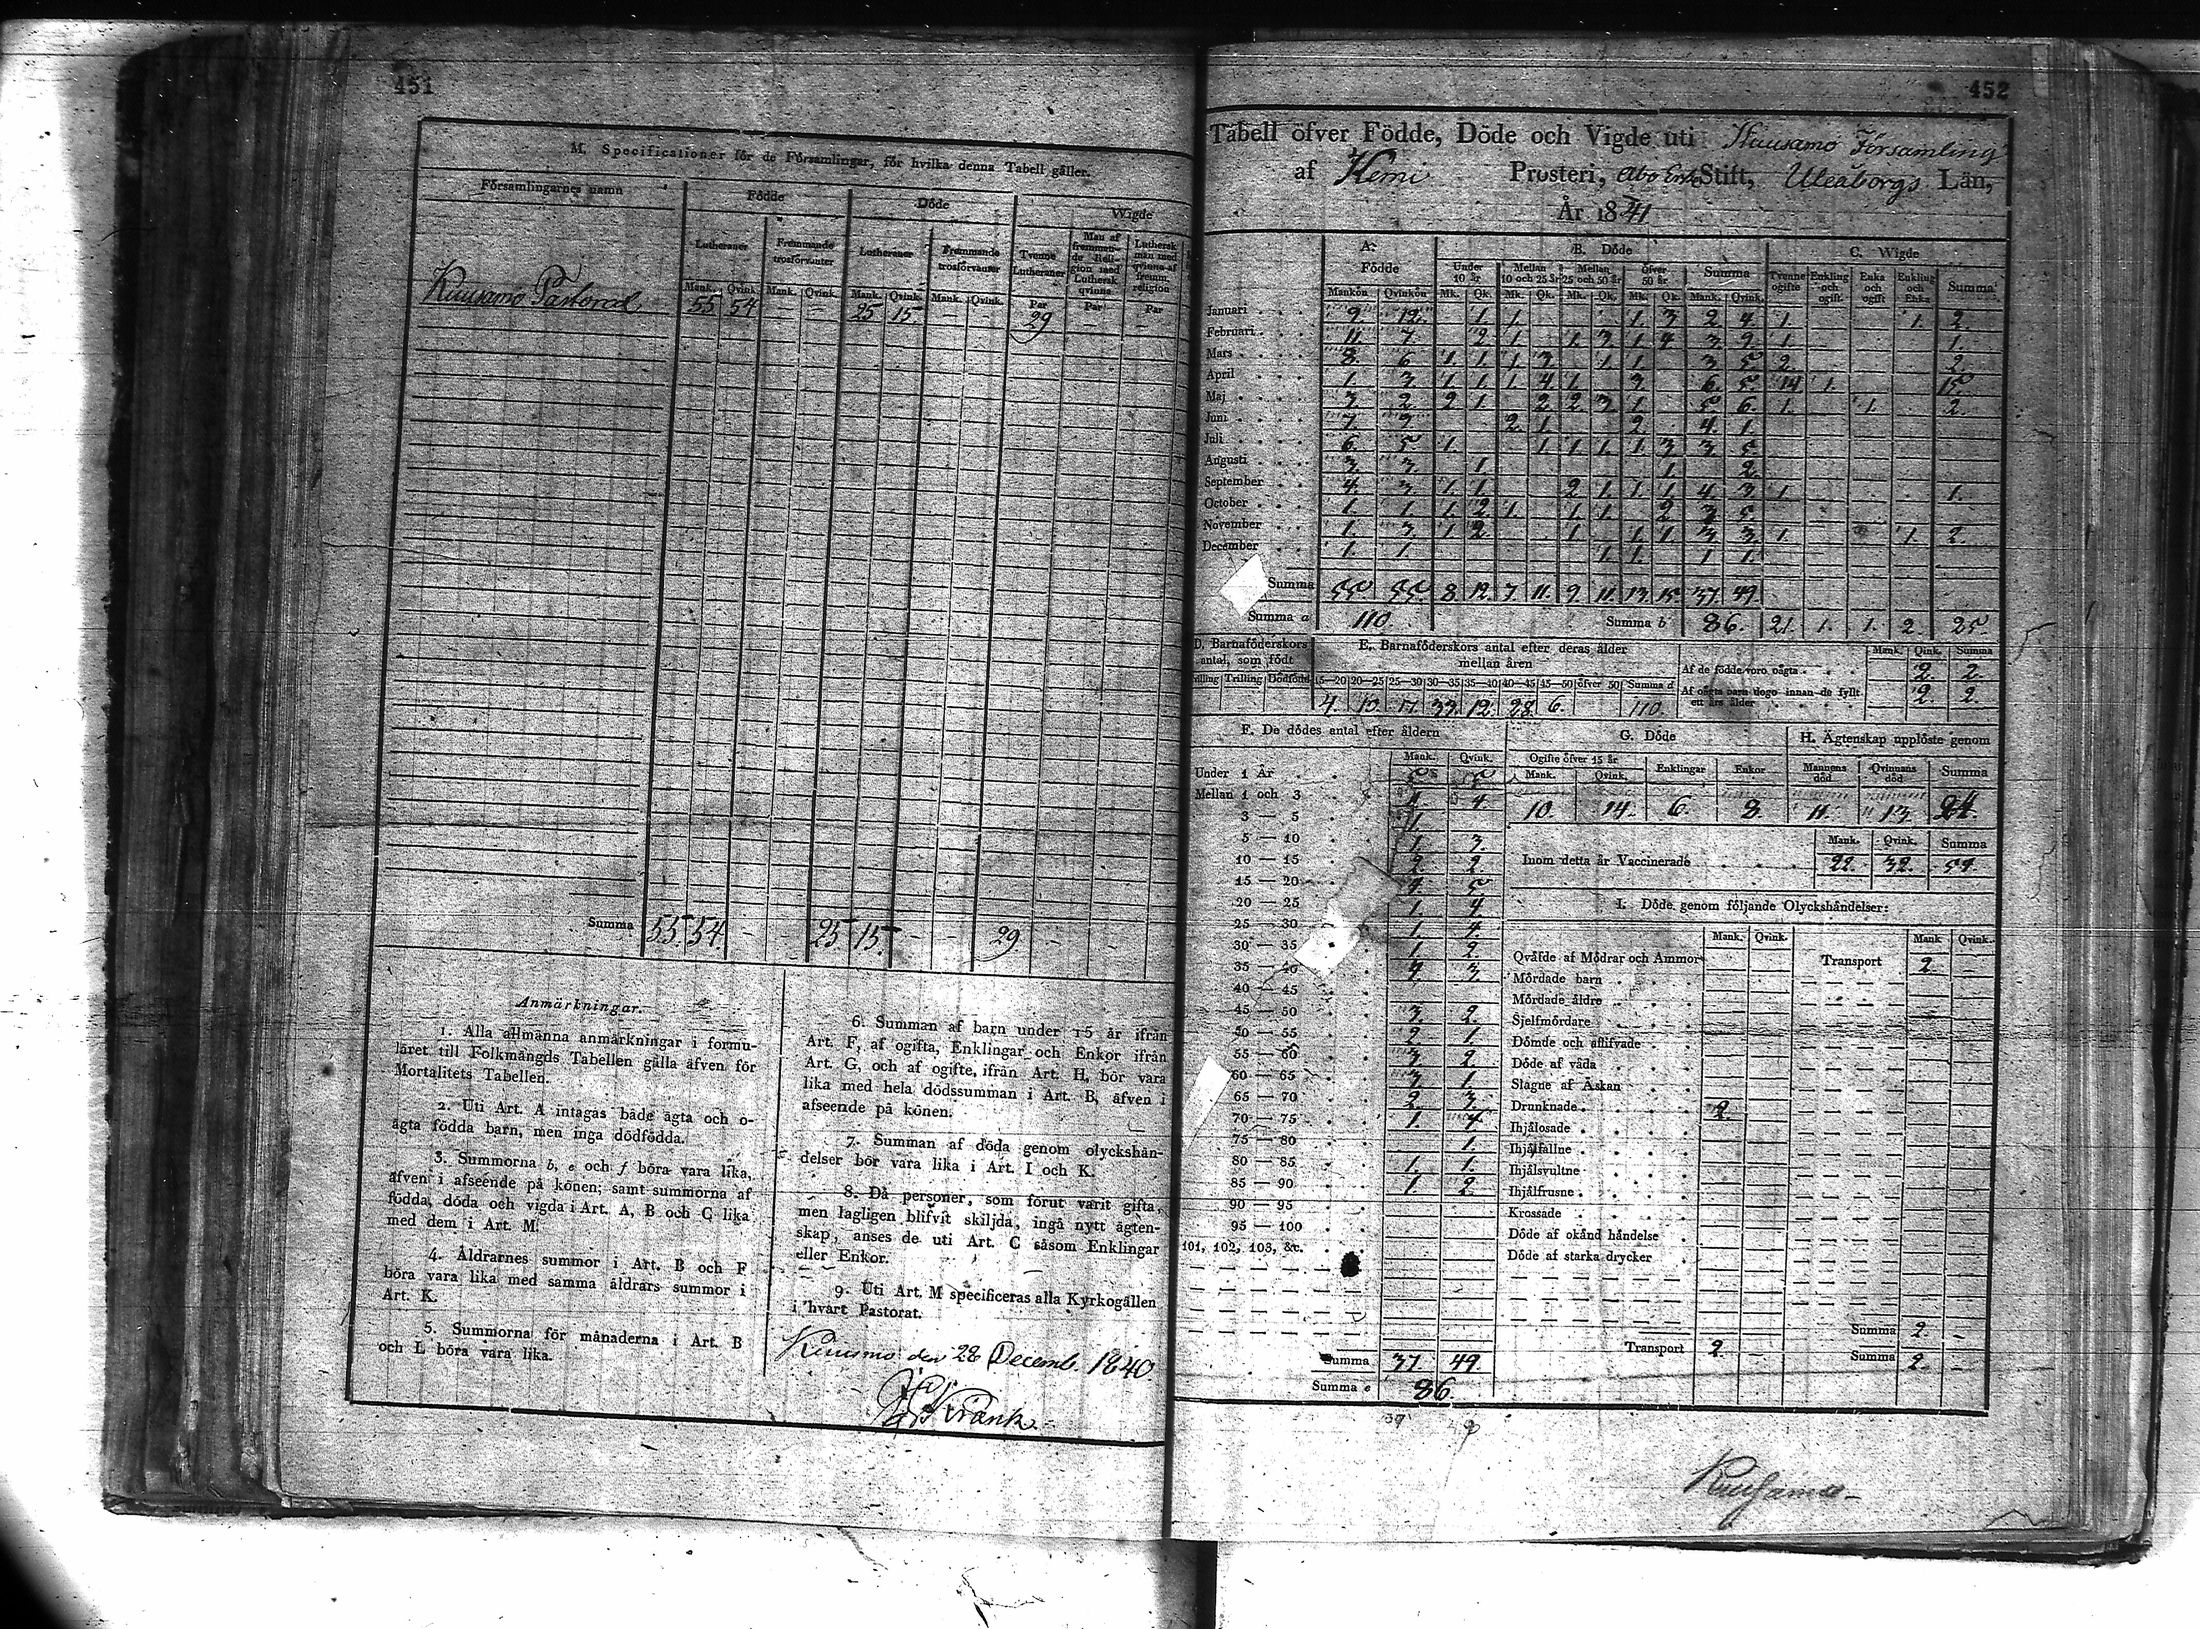 451
M. Specificationer för de Församlingar, för hvilka denna Tabell gäller.
Församlingarnes namn Födde Döde Wigde
Lutheraner Främmande trosförvanter Lutheraner Främmande trosförvanter Tvenne Lutheraner Man af främmande Religion med Luthersk qvinna Luthersk man med qvinna af främm religion
Mank. Qvink. Mank. Qvink. Mank. Qvink. Mank. Qvink. Par Par Par
Kuusamo Pastorat 55 54 — — 25 15 — — 29 — —
Summa 55. 54. — — 25 15. — — 29 — —
Anmärkningar.
1. Alla allmänna anmärkningar i formu-
läret till Folkmängds Tabellen gälla äfven för
Mortalitets Tabellen.
2. Uti Art. A intagas både ägta och o-
ägta födda barn, men inga dödfödda.
3. Summorna b, e och f böra vara lika,
äfven i afseende på könen; samt summorna af
födda, döda och vigda i Art. A, B och C lika
med dem i Art. M.
4. Åldrarnes summor i Art. B och F
böra vara lika med samma åldrars summor i
Art. K.
5. Summorna för månaderna i Art. B
och L böra vara lika.
6. Summan af barn under 15 år ifrån
Art. F, af ogifta, Enklingar och Enkor ifrån
Art. G, och af ogifte, ifrån Art. H, bör vara
lika med hela dödssumman i Art. B, äfven i
afseende på könen.
7. Summan af döda genom olyckshän-
delser bör vara lika i Art. I och K.
8. Då personer, som förut varit gifta,
men lagligen blifvit skiljda, ingå nytt ägten-
skap, anses de uti Art. C såsom Enklingar
eller Enkor.
9. Uti Art. M specificeras alla Kyrkogällen
i hvart Pastorat.
Kuusmo den 28 Decemb. 1840
Frank
452
Tabell öfver Födde, Döde och Vigde uti Kuusamo Församling
af Kemi Prosteri, Åbo Erke Stift, Uleåborgs Län,
År 1841
A. Födde B. Döde C. Wigde
Under 10 år Mellan 10 och 25 år Mellan 25 och 50 år öfver 50 år Summa Tvenne ogifte Enkling och ogift Enka och ogift Enkling och Enka Summa
Mankön Qvinkön Mk. Qk. Mk. Qk. Mk. Qk. Mk. Qk. Mank. Qvink.
Januari 9. 12. 1 1. 1. 3 2 4 1. 1. 2.
Februari 11. 7. 2 1. 1. 3. 1. 4 3. 9. 1. 1.
Mars 8. 6 1 1 1 3. 1. 1. 3 5. 2. 2.
April 1. 3. 1 1. 1 4 1. 3. 6. 5. 14 1. 15
Maj 3. 2. 2 1. 2 2 3 1. 5 6. 1. 1. 2.
Juni 7. 9. 2 1. 2. 4. 1.
Juli 6. 5 1. 1. 1 1. 1. 3 3 5.
Augusti 3. 3. 1. 1. 2.
September 4. 3. 1. 1. 2 1. 1. 1. 4 3 1. 1.
October 1. 1. 1. 2 1. 1. 1. 2. 3. 5.
November 1. 3. 1. 2. 1. 1. 1 3 3 1. 1. 2.
December 1. 1. 1. 1. 1 1.
Summa 55 55. 8. 12. 7 11. 9. 11. 13. 15. 37. 49.
Summa a 110. Summa b 86. 21. 1. 1. 2. 25.
D. Barnaföderskors antal, som födt
Tvilling Trilling Dödfödd
E. Barnaföderskors antal efter deras ålder
mellan åren
15—20 20—25 25—30 30—35 35—40 40—45 45—50 öfver 50 Summa d
4. 10. 17. 33. 12. 28. 6. 110.
Mank. Qink. Summa
Af de födde voro oägta 2. 2.
Af oägta barn dogo innan de fyllt
ett års ålder 2. 2.
F. De dödes antal efter åldern
Mank. Qvink.
Under 1 År 5 5
Mellan 1 och 3 1. 4.
3 — 5 1.
5 — 10 1. 3.
10 — 15 2. 2.
15 — 20 4. 5
20 — 25 1. 4.
25 — 30 1. 4.
30 — 35 1. 2.
35 — 40 4. 3.
40 — 45
45 — 50 3. 2.
50 — 55 2. 1.
55 — 60 3. 2.
60 — 65 3. 1.
65 — 70 2. 3.
70 — 75 1. 4
75 — 80 1.
80 — 85 1. 1.
85 — 90 1. 2.
90 — 95
95 — 100
101, 102, 103, &c.
Summa 37. 49.
Summa e 86.
G. Döde
Ogifte öfver 15 år Enklingar Enkor
Mank. Qvink.
10. 14. 6. 8.
H. Ägtenskap upplöste genom
Mannens död Qvinnans död Summa
11. 13. 24.
Mank. Qvink. Summa
Inom detta år Vaccinerade 22. 32. 54.
I. Döde genom följande Olyckshändelser:
Mank. Qvink. Mank Qvink.
Qväfde af Mödrar och Ammor Transport 2. —
Mördade barn
Mördade äldre
Sjelfmördare
Dömde och aflifvade
Döde af våda
Slagne af Åskan
Drunknade 2.
Ihjälosade
Ihjälfallne
Ihjälsvultne
Ihjälfrusne
Krossade
Döde af okänd händelse
Döde af starka drycker
Summa 2. —
Transport 2. — Summa 2. —
Kuusamo